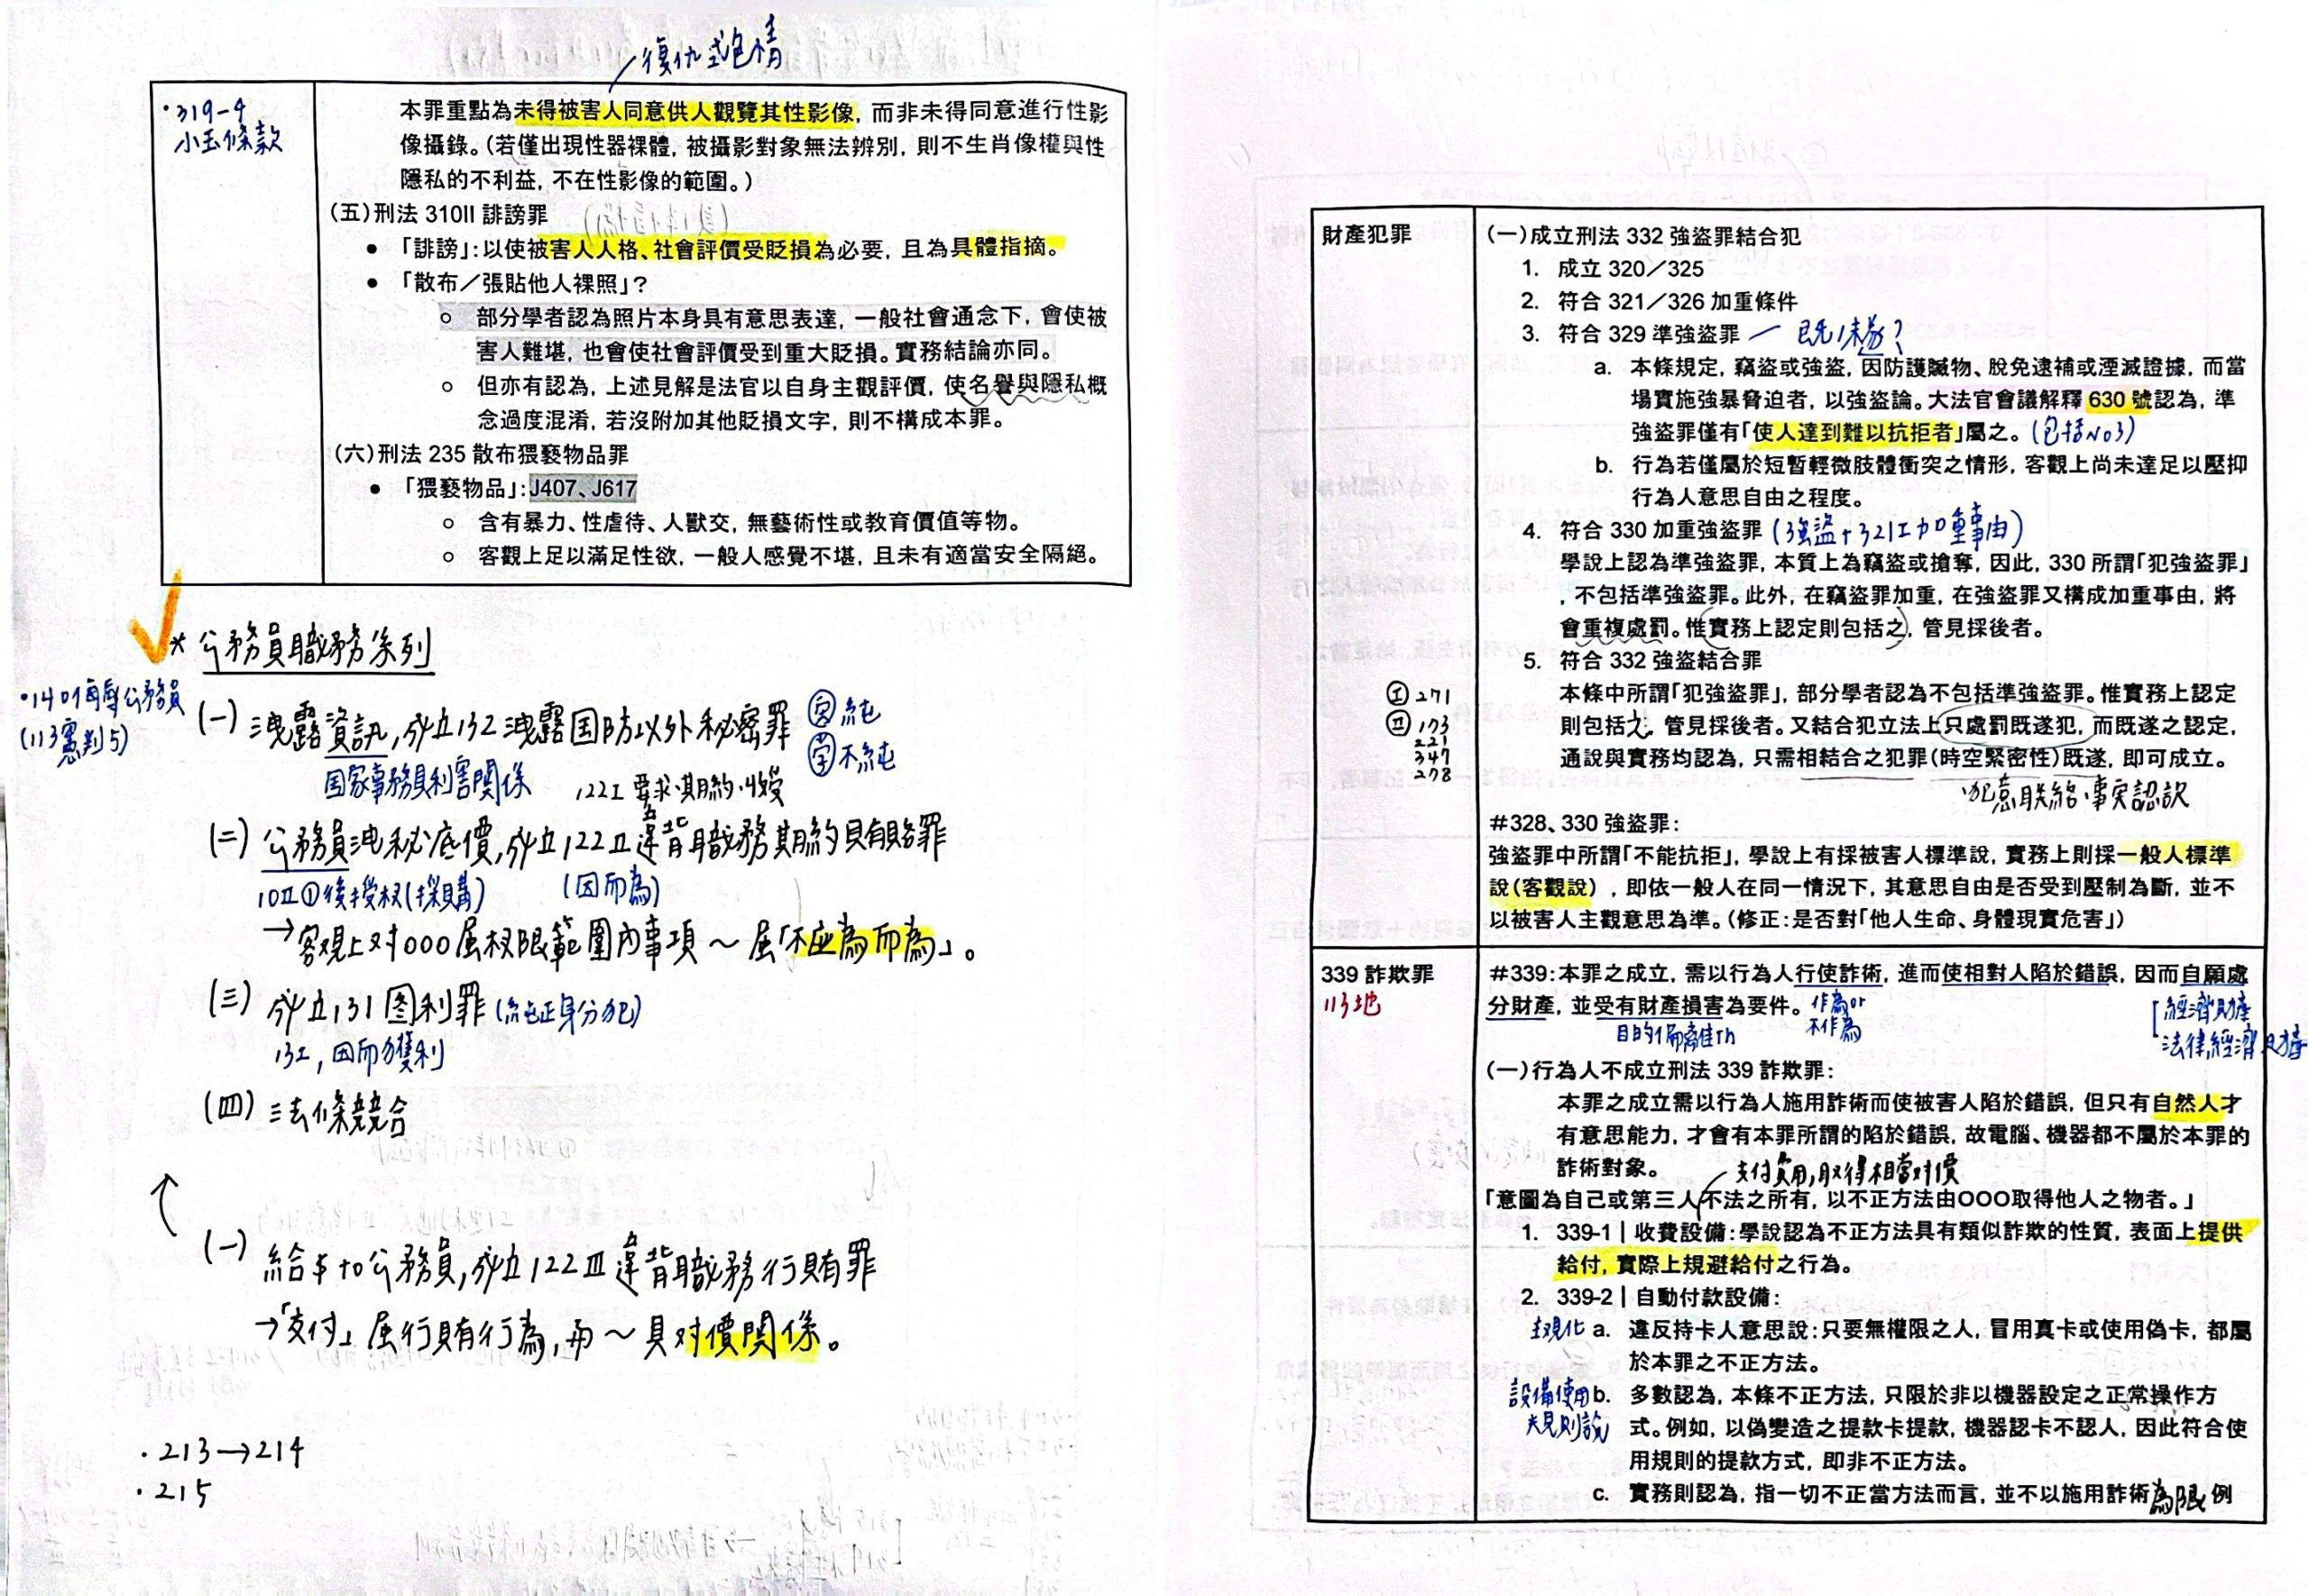 復仇式色情
·319-4
小玉條款
本罪重點為未得被害人同意供人觀覽其性影像，而非未得同意進行性影
像攝錄。（若僅出現性器裸體，被攝影對象無法辨別，則不生肖像權與性
隱私的不利益，不在性影像的範圍。）
（五）刑法 310II 誹謗罪
● 「誹謗」：以使被害人人格、社會評價受貶損為必要，且為具體指摘。
● 「散布／張貼他人裸照」？
○ 部分學者認為照片本身具有意思表達，一般社會通念下，會使被
害人難堪，也會使社會評價受到重大貶損。實務結論亦同。
○ 但亦有認為，上述見解是法官以自身主觀評價，使名譽與隱私概
念過度混淆，若沒附加其他貶損文字，則不構成本罪。
（六）刑法 235 散布猥褻物品罪
● 「猥褻物品」：J407、J617
○ 含有暴力、性虐待、人獸交，無藝術性或教育價值等物。
○ 客觀上足以滿足性欲，一般人感覺不堪，且未有適當安全隔絕。
* 公務員職務系列
·140侮辱公務員
(113憲判5)
(一) 洩露資訊，成立132洩露国防以外秘密罪
純
不純
国家事務具利害関係
122I 要求·期約·收受
(二) 公務員洩秘底價，成立122II違背職務期約賄賂罪
10II①後授权(採購)
(因而為)
→客观上对000屬权限範圍內事項～屬「不应為而為」。
(三) 成立131圖利罪(純正身分犯)
131，因而獲利
(四) 法條競合
↑
(一) 給$to公務員，成立122III違背職務行賄罪
→「支付」屬行賄行為，而～具对價関係。
·213→214
·215
財產犯罪
（一）成立刑法 332 強盜罪結合犯
1. 成立 320／325
2. 符合 321／326 加重條件
3. 符合 329 準強盜罪 — 既/未遂?
a. 本條規定，竊盜或強盜，因防護贓物、脫免逮補或湮滅證據，而當
場實施強暴脅迫者，以強盜論。大法官會議解釋 630 號認為，準
強盜罪僅有「使人達到難以抗拒者」屬之。(包括No3)
b. 行為若僅屬於短暫輕微肢體衝突之情形，客觀上尚未達足以壓抑
行為人意思自由之程度。
4. 符合 330 加重強盜罪 (強盜+321I加重事由)
學說上認為準強盜罪，本質上為竊盜或搶奪，因此，330 所謂「犯強盜罪」
，不包括準強盜罪。此外，在竊盜罪加重，在強盜罪又構成加重事由，將
會重複處罰。惟實務上認定則包括之，管見採後者。
5. 符合 332 強盜結合罪
I 271
II 173
221
347
278
本條中所謂「犯強盜罪」，部分學者認為不包括準強盜罪。惟實務上認定
則包括之，管見採後者。又結合犯立法上只處罰既遂犯，而既遂之認定，
通說與實務均認為，只需相結合之犯罪（時空緊密性）既遂，即可成立。
·犯意联絡·事实認識
#328、330 強盜罪：
強盜罪中所謂「不能抗拒」，學說上有採被害人標準說，實務上則採一般人標準
說（客觀說），即依一般人在同一情況下，其意思自由是否受到壓制為斷，並不
以被害人主觀意思為準。（修正：是否對「他人生命、身體現實危害」）
339 詐欺罪
113地
#339：本罪之成立，需以行為人行使詐術，進而使相對人陷於錯誤，因而自願處
分財產，並受有財產損害為要件。
作為or
不作為
目的偏離
經濟財產
法律經濟財產
（一）行為人不成立刑法 339 詐欺罪：
本罪之成立需以行為人施用詐術而使被害人陷於錯誤，但只有自然人才
有意思能力，才會有本罪所謂的陷於錯誤，故電腦、機器都不屬於本罪的
詐術對象。
支付費用，取得相當对價
「意圖為自己或第三人不法之所有，以不正方法由OOO取得他人之物者。」
1. 339-1｜收費設備：學說認為不正方法具有類似詐欺的性質，表面上提供
給付，實際上規避給付之行為。
2. 339-2｜自動付款設備：
主观化 a. 違反持卡人意思說：只要無權限之人，冒用真卡或使用偽卡，都屬
於本罪之不正方法。
設備使用
規則說
b. 多數認為，本條不正方法，只限於非以機器設定之正常操作方
式。例如，以偽變造之提款卡提款，機器認卡不認人，因此符合使
用規則的提款方式，即非不正方法。
c. 實務則認為，指一切不正當方法而言，並不以施用詐術為限 例